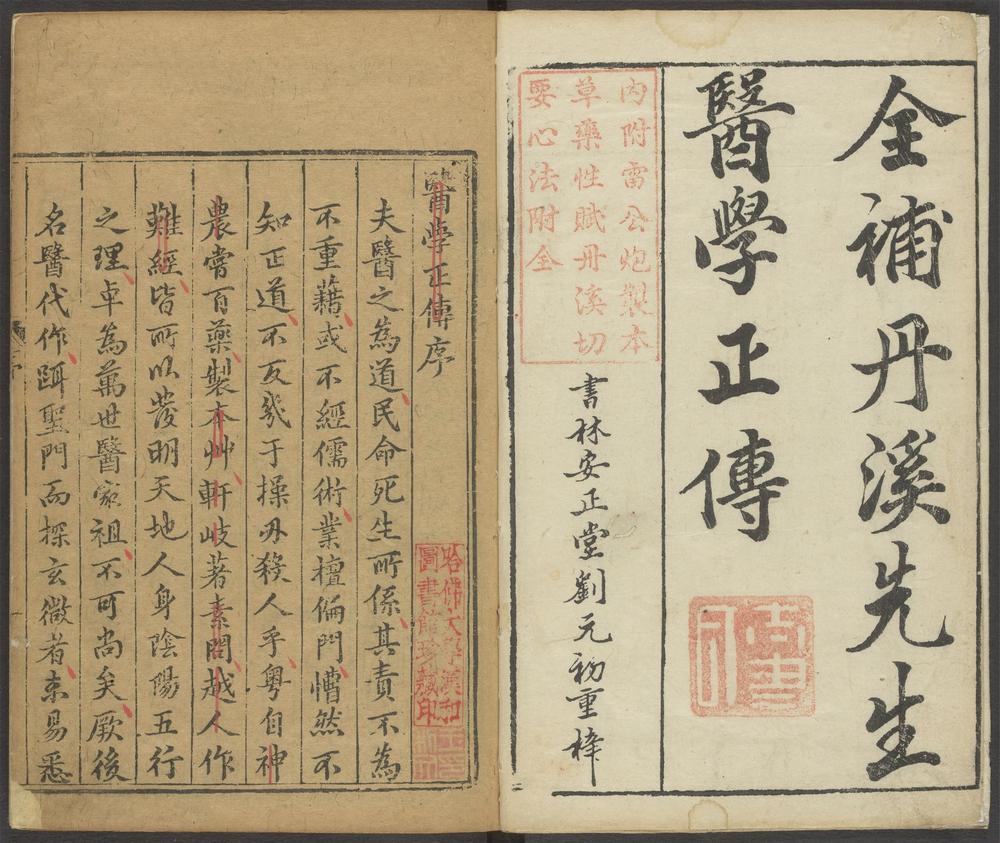 全補丹溪先生
醫學正傳
內附雷公炮製本
草藥性賦丹溪切
要心法附全
書林安正堂劉元初重梓
醫学正傳序
夫醫之為道民命死生所係其責不為
不重藉或不經儒術業擅偏門懵然不
知正道不反幾于操刃殺人乎粵自神
農嘗百藥製本艸軒岐著素問越人作
難經皆所以發明天地人身陰陽五行
之理卓為萬世醫家祖不可尚矣厥後
名醫代作踵聖門而探玄微者未易悉
哈佛大學漢和
圖書館珍藏印